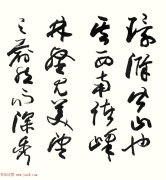 环滁皆山也
其西南诸峰
林壑尤美望
之蔚然而深秀